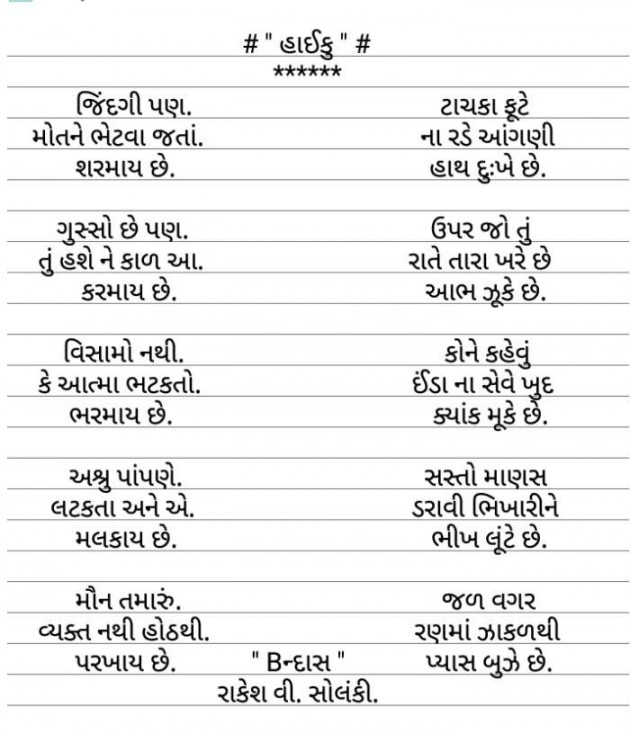 # " હાઈકુ " #
******
જિંદગી પણ.
મોતને ભેટવા જતાં.
શરમાય છે.
ગુસ્સો છે પણ.
તું હશે ને કાળ આ.
કરમાય છે.
વિસામો નથી.
કે આત્મા ભટકતો.
ભરમાય છે.
અશ્રુ પાંપણે.
લટકતા અને એ.
મલકાય છે.
મૌન તમારું.
વ્યક્ત નથી હોઠથી.
પરખાય છે.
ટાચકા ફૂટે
ના રડે આંગણી
હાથ દુઃખે છે.
ઉપર જો તું
રાતે તારા ખરે છે
આભ ઝૂકે છે.
કોને કહેવું
ઈંડા ના સેવે ખુદ
ક્યાંક મૂકે છે.
સસ્તો માણસ
ડરાવી ભિખારીને
ભીખ લૂંટે છે.
જળ વગર
રણમાં ઝાકળથી
પ્યાસ બુઝે છે.
" B-દાસ "
રાકેશ વી. સોલંકી.